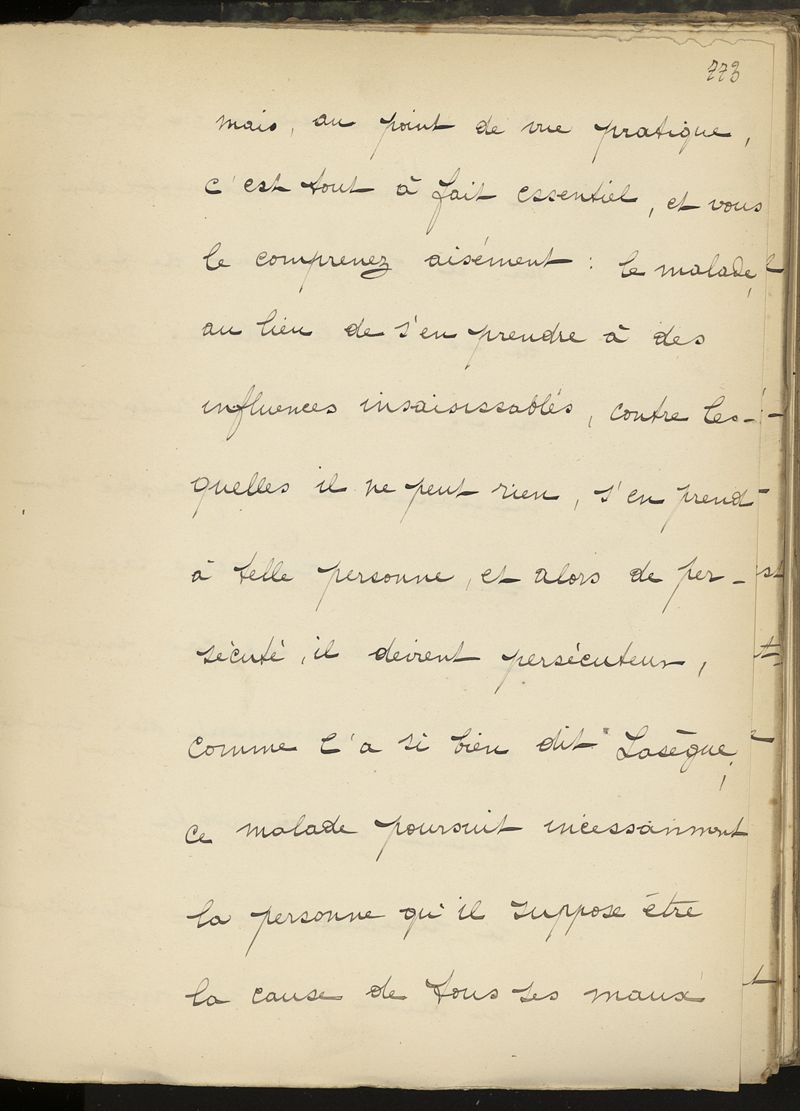 773
mais, au point de vue pratique,
c'est tout à fait essentiel, et vous
le comprenez aisément : le malade,
au lieu de s'en prendre à des
influences insaisissables, contre les-
quelles il ne peut rien, s'en prend
à telle personne, et alors de per-
sécuté, il devient persécuteur,
comme l'a si bien dit Lasègue ;
ce malade poursuit incessamment
la personne qu'il suppose être
la cause de tous ses maux